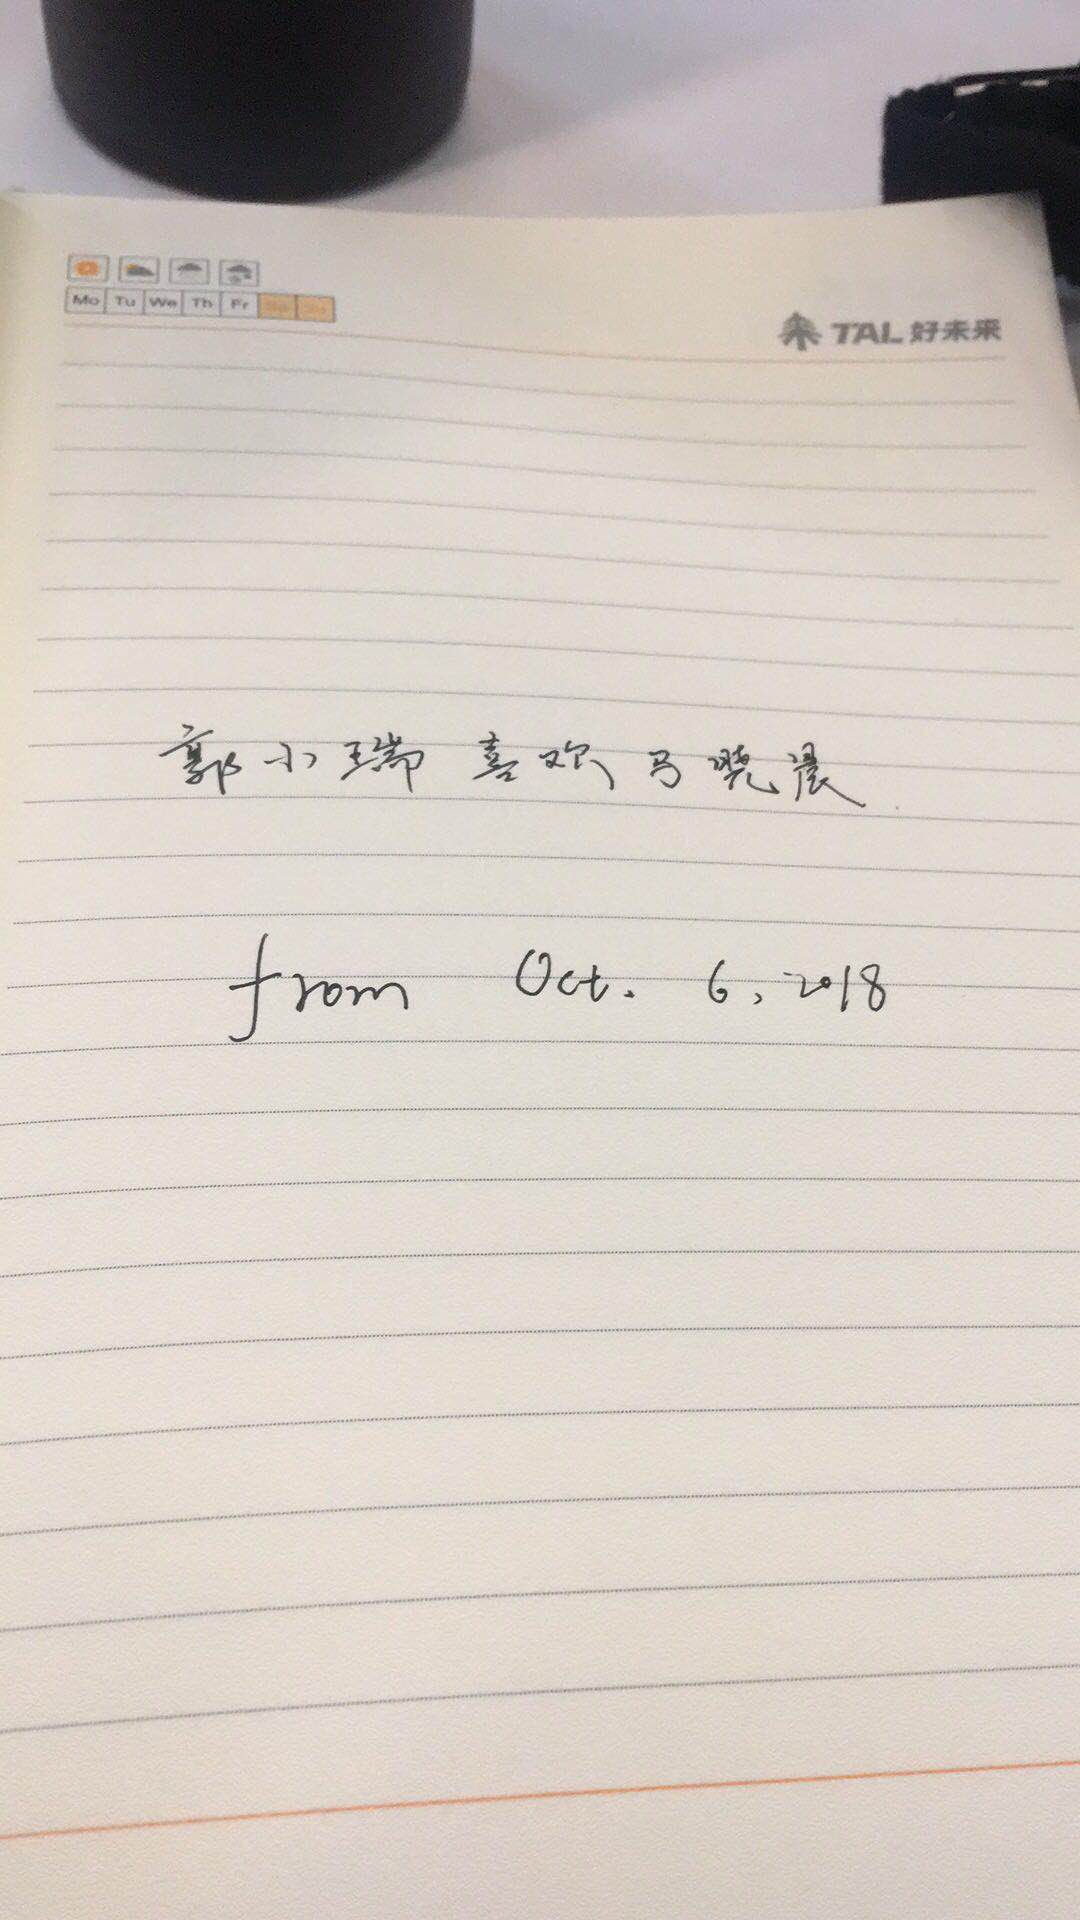 Mo Tu We Th Fr Sa Su
TAL 好未来
郭小瑞 喜欢 马晓晨
from Oct. 6, 2018